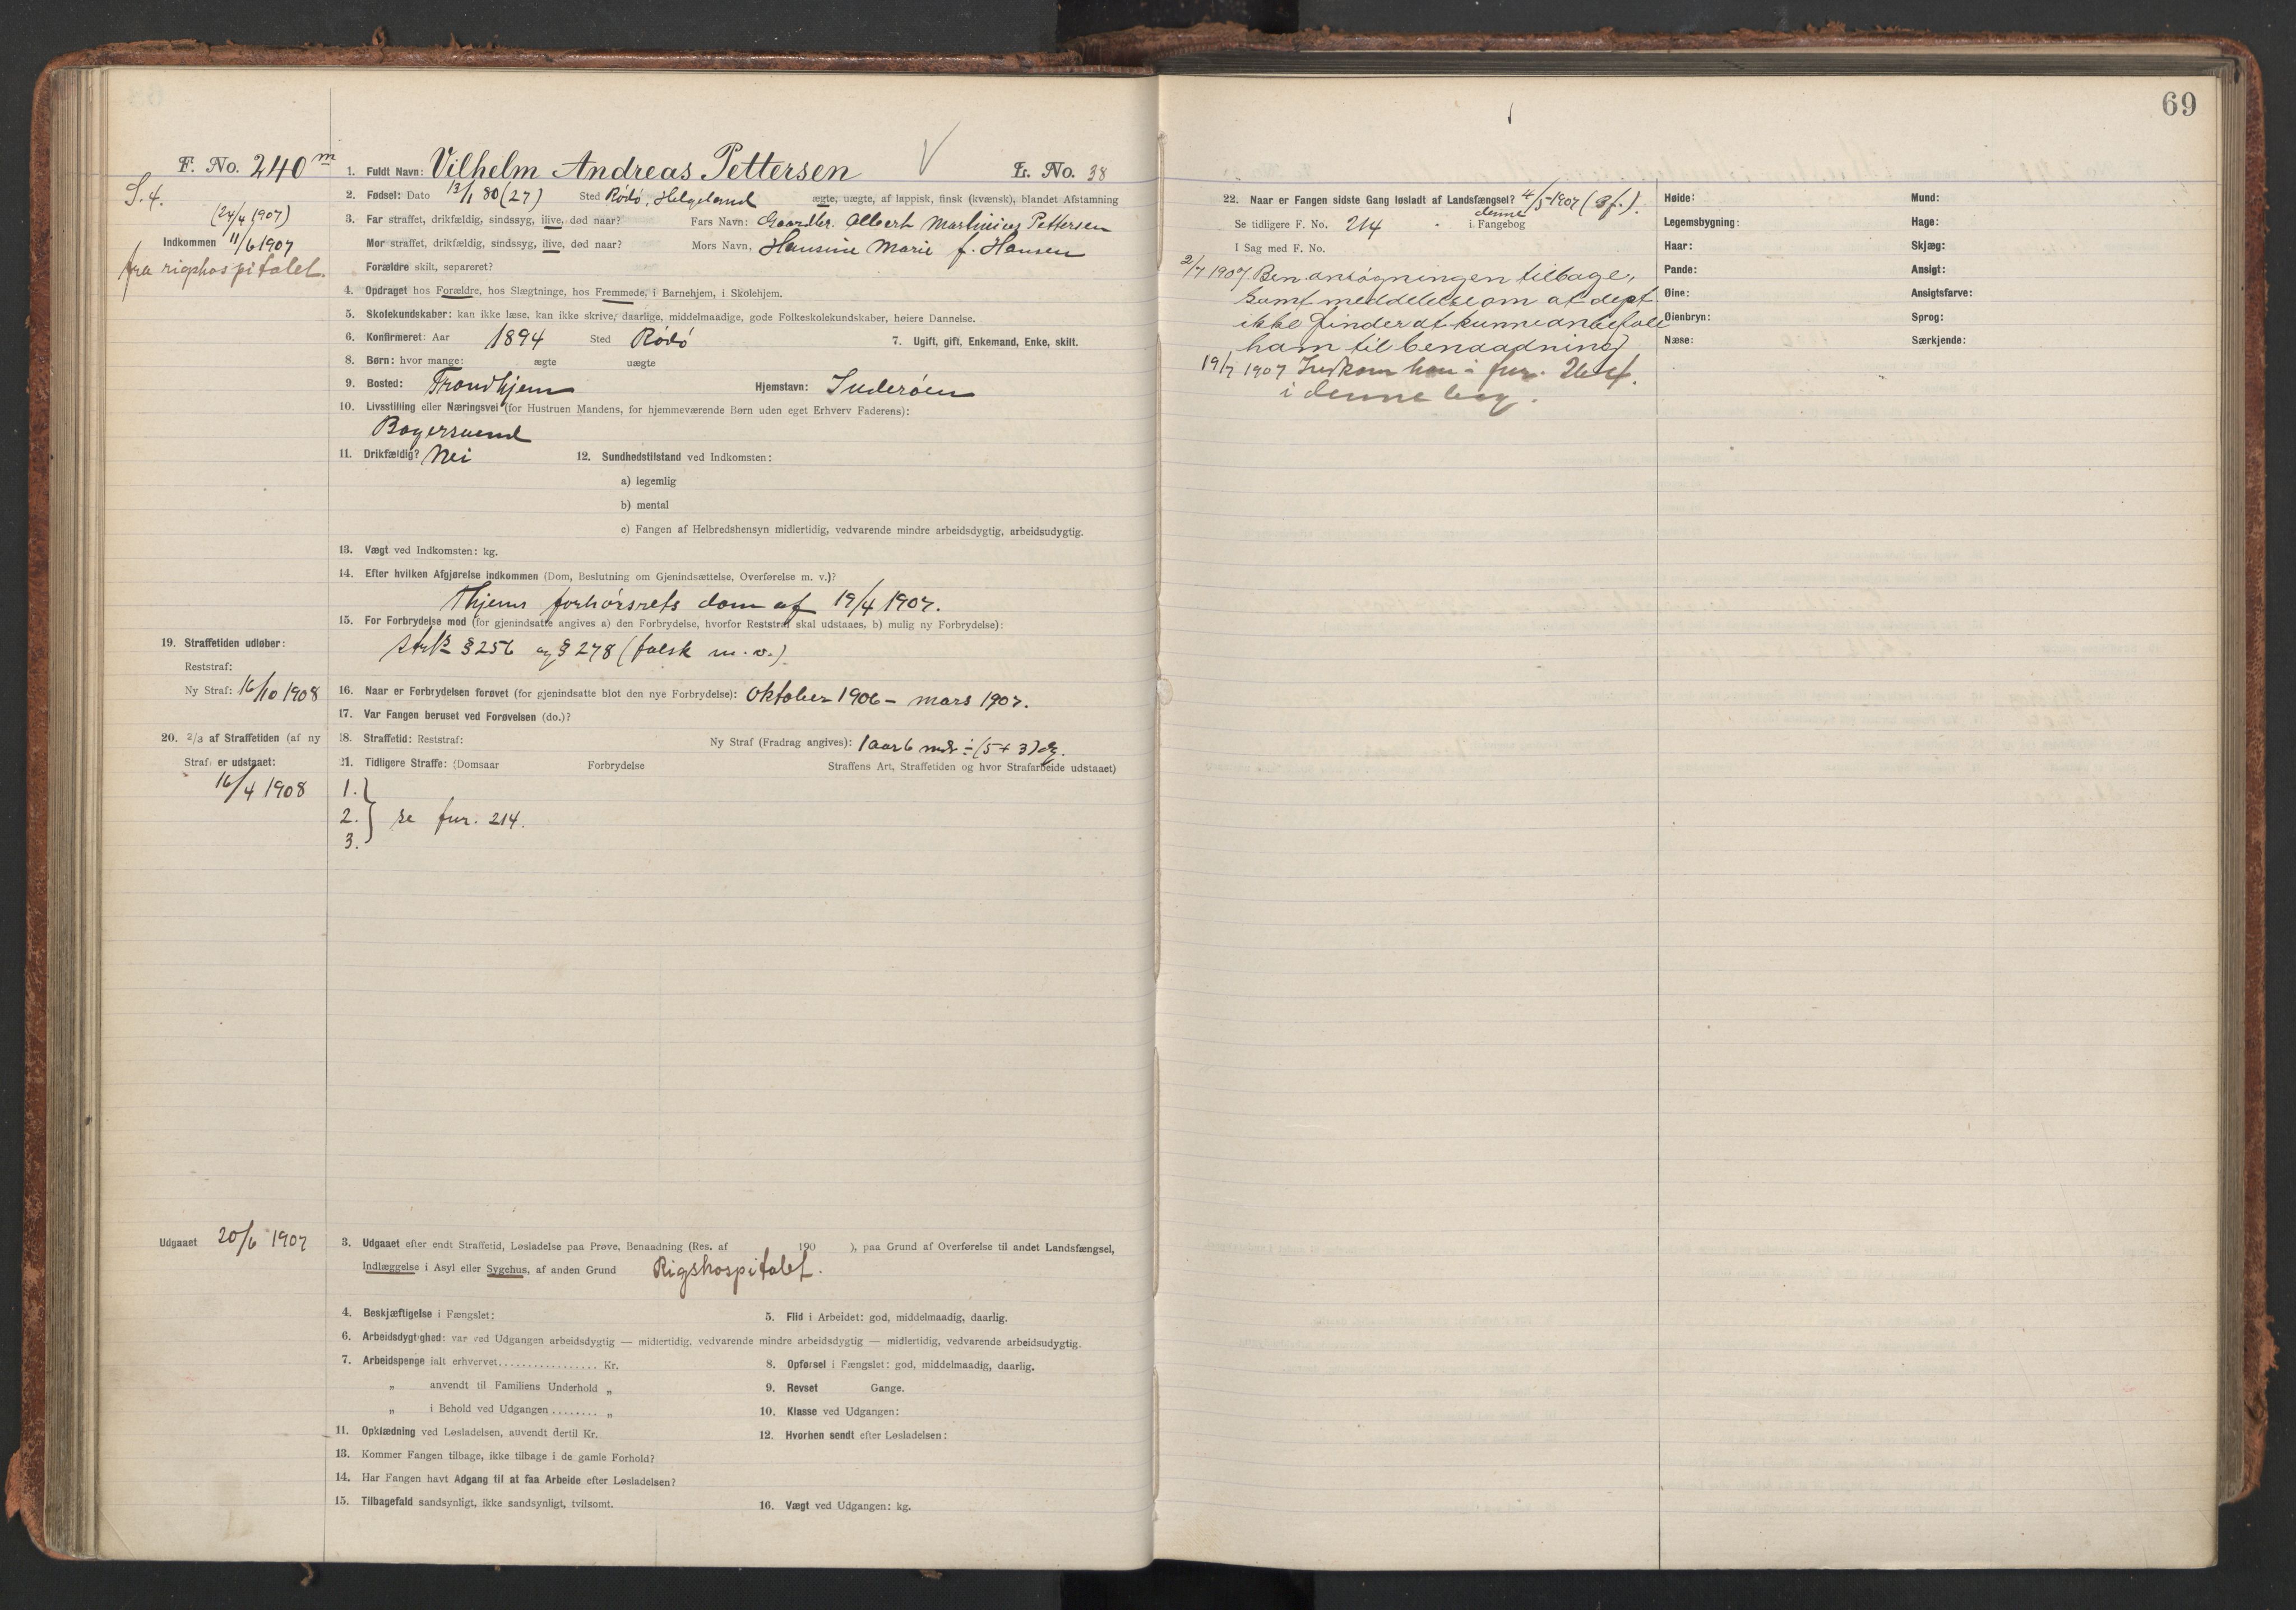 69
F. No. 240 m
1. Fuldt Navn: Vilhelm Andreas Pettersen
L. No. 38
S. 4.
(24/4 1907)
Indkommen 11/6 1907
fra rigshospitalet.
2. Fødsel: Dato 13/1 80 (27) Sted Rødø, Helgeland ægte, uægte, af lappisk, finsk (kvænsk), blandet Afstamning
3. Far straffet, drikfældig, sindssyg, ilive, død naar? Fars Navn: Gaardbr. Albert Martinius Pettersen
Mor straffet, drikfældig, sindssyg, ilive, død naar? Mors Navn, Hansine Marie f. Hansen
Forældre skilt, separeret?
4. Opdraget hos Forældre, hos Slægtninge, hos Fremmede, i Barnehjem, i Skolehjem.
5. Skolekundskaber: kan ikke læse, kan ikke skrive, daarlige, middelmaadige, gode Folkeskolekundskaber, høiere Dannelse.
6. Konfirmeret: Aar 1894 Sted Rødø 7. Ugift, gift, Enkemand, Enke, skilt.
8. Børn: hvor mange: ægte uægte
9. Bosted: Trondhjem Hjemstavn: Inderøen
10. Livsstilling eller Næringsvei (for Hustruen Mandens, for hjemmeværende Børn uden eget Erhverv Faderens):
Bagersvend
11. Drikfældig? Nei 12. Sundhedstilstand ved Indkomsten:
a) legemlig
b) mental
c) Fangen af Helbredshensyn midlertidig, vedvarende mindre arbeidsdygtig, arbeidsudygtig.
13. Vægt ved Indkomsten: kg.
14. Efter hvilken Afgjørelse indkommen (Dom, Beslutning om Gjenindsættelse, Overførelse m. v.)?
Thjems forhørsrets dom af 19/4 1907.
15. For Forbrydelse mod (for gjenindsatte angives a) den Forbrydelse, hvorfor Reststraf skal udstaaes, b) mulig ny Forbrydelse):
§ 256 og § 278 (falsk m. v.).
19. Straffetiden udløber:
Reststraf:
Ny Straf: 16/10 1908
16. Naar er Forbrydelsen forøvet (for gjenindsatte blot den nye Forbrydelse): Oktober 1906 - mars 1907.
17. Var Fangen beruset ved Forøvelsen (do.)?
20. 2/3 af Straffetiden (af ny
Straf) er udstaaet:
16/4 1908
18. Straffetid: Reststraf: Ny Straf (Fradrag angives): 1 aar 6 mdr ÷ (5 + 3) dg.
21. Tidligere Straffe: (Domsaar Forbrydelse Straffens Art, Straffetiden og hvor Strafarbeide udstaaet)
1.
2. se fnr. 214.
3.
Udgaaet 20/6 1907
3. Udgaaet efter endt Straffetid, Løsladelse paa Prøve, Benaadning (Res. af 190 ), paa Grund af Overførelse til andet Landsfængsel,
Indlæggelse i Asyl eller Sygehus, af anden Grund Rigshospitalet.
4. Beskjæftigelse i Fængslet: 5. Flid i Arbeidet: god, middelmaadig, daarlig.
6. Arbeidsdygtighed: var ved Udgangen arbeidsdygtig — midlertidig, vedvarende mindre arbeidsdygtig — midlertidig, vedvarende arbeidsudygtig.
7. Arbeidspenge ialt erhvervet................ Kr. 8. Opførsel i Fængslet: god, middelmaadig, daarlig.
„ anvendt til Familiens Underhold „ 9. Revset Gange.
„ i Behold ved Udgangen ........ „ 10. Klasse ved Udgangen:
11. Opklædning ved Løsladelsen, anvendt dertil Kr. 12. Hvorhen sendt efter Løsladelsen:
13. Kommer Fangen tilbage, ikke tilbage i de gamle Forhold?
14. Har Fangen havt Adgang til at faa Arbeide efter Løsladelsen?
15. Tilbagefald sandsynligt, ikke sandsynligt, tvilsomt. 16. Vægt ved Udgangen: kg.
22. Naar er Fangen sidste Gang løsladt af Landsfængsel? 4/5 1907 (3 f.).
Se tidligere F. No. 214 i denne Fangebog
I Sag med F. No.
2/7 1907 Ben.ansøgningen tilbage,
samt meddelelse om at dept.
ikke finder at kunne anbefale
ham til benaadning.
19/7 1907 Indkom han i fnr.
i denne bog.
Høide: Mund:
Legemsbygning: Hage:
Haar: Skjæg:
Pande: Ansigt:
Øine: Ansigtsfarve:
Øienbryn: Sprog:
Næse: Særkjende: